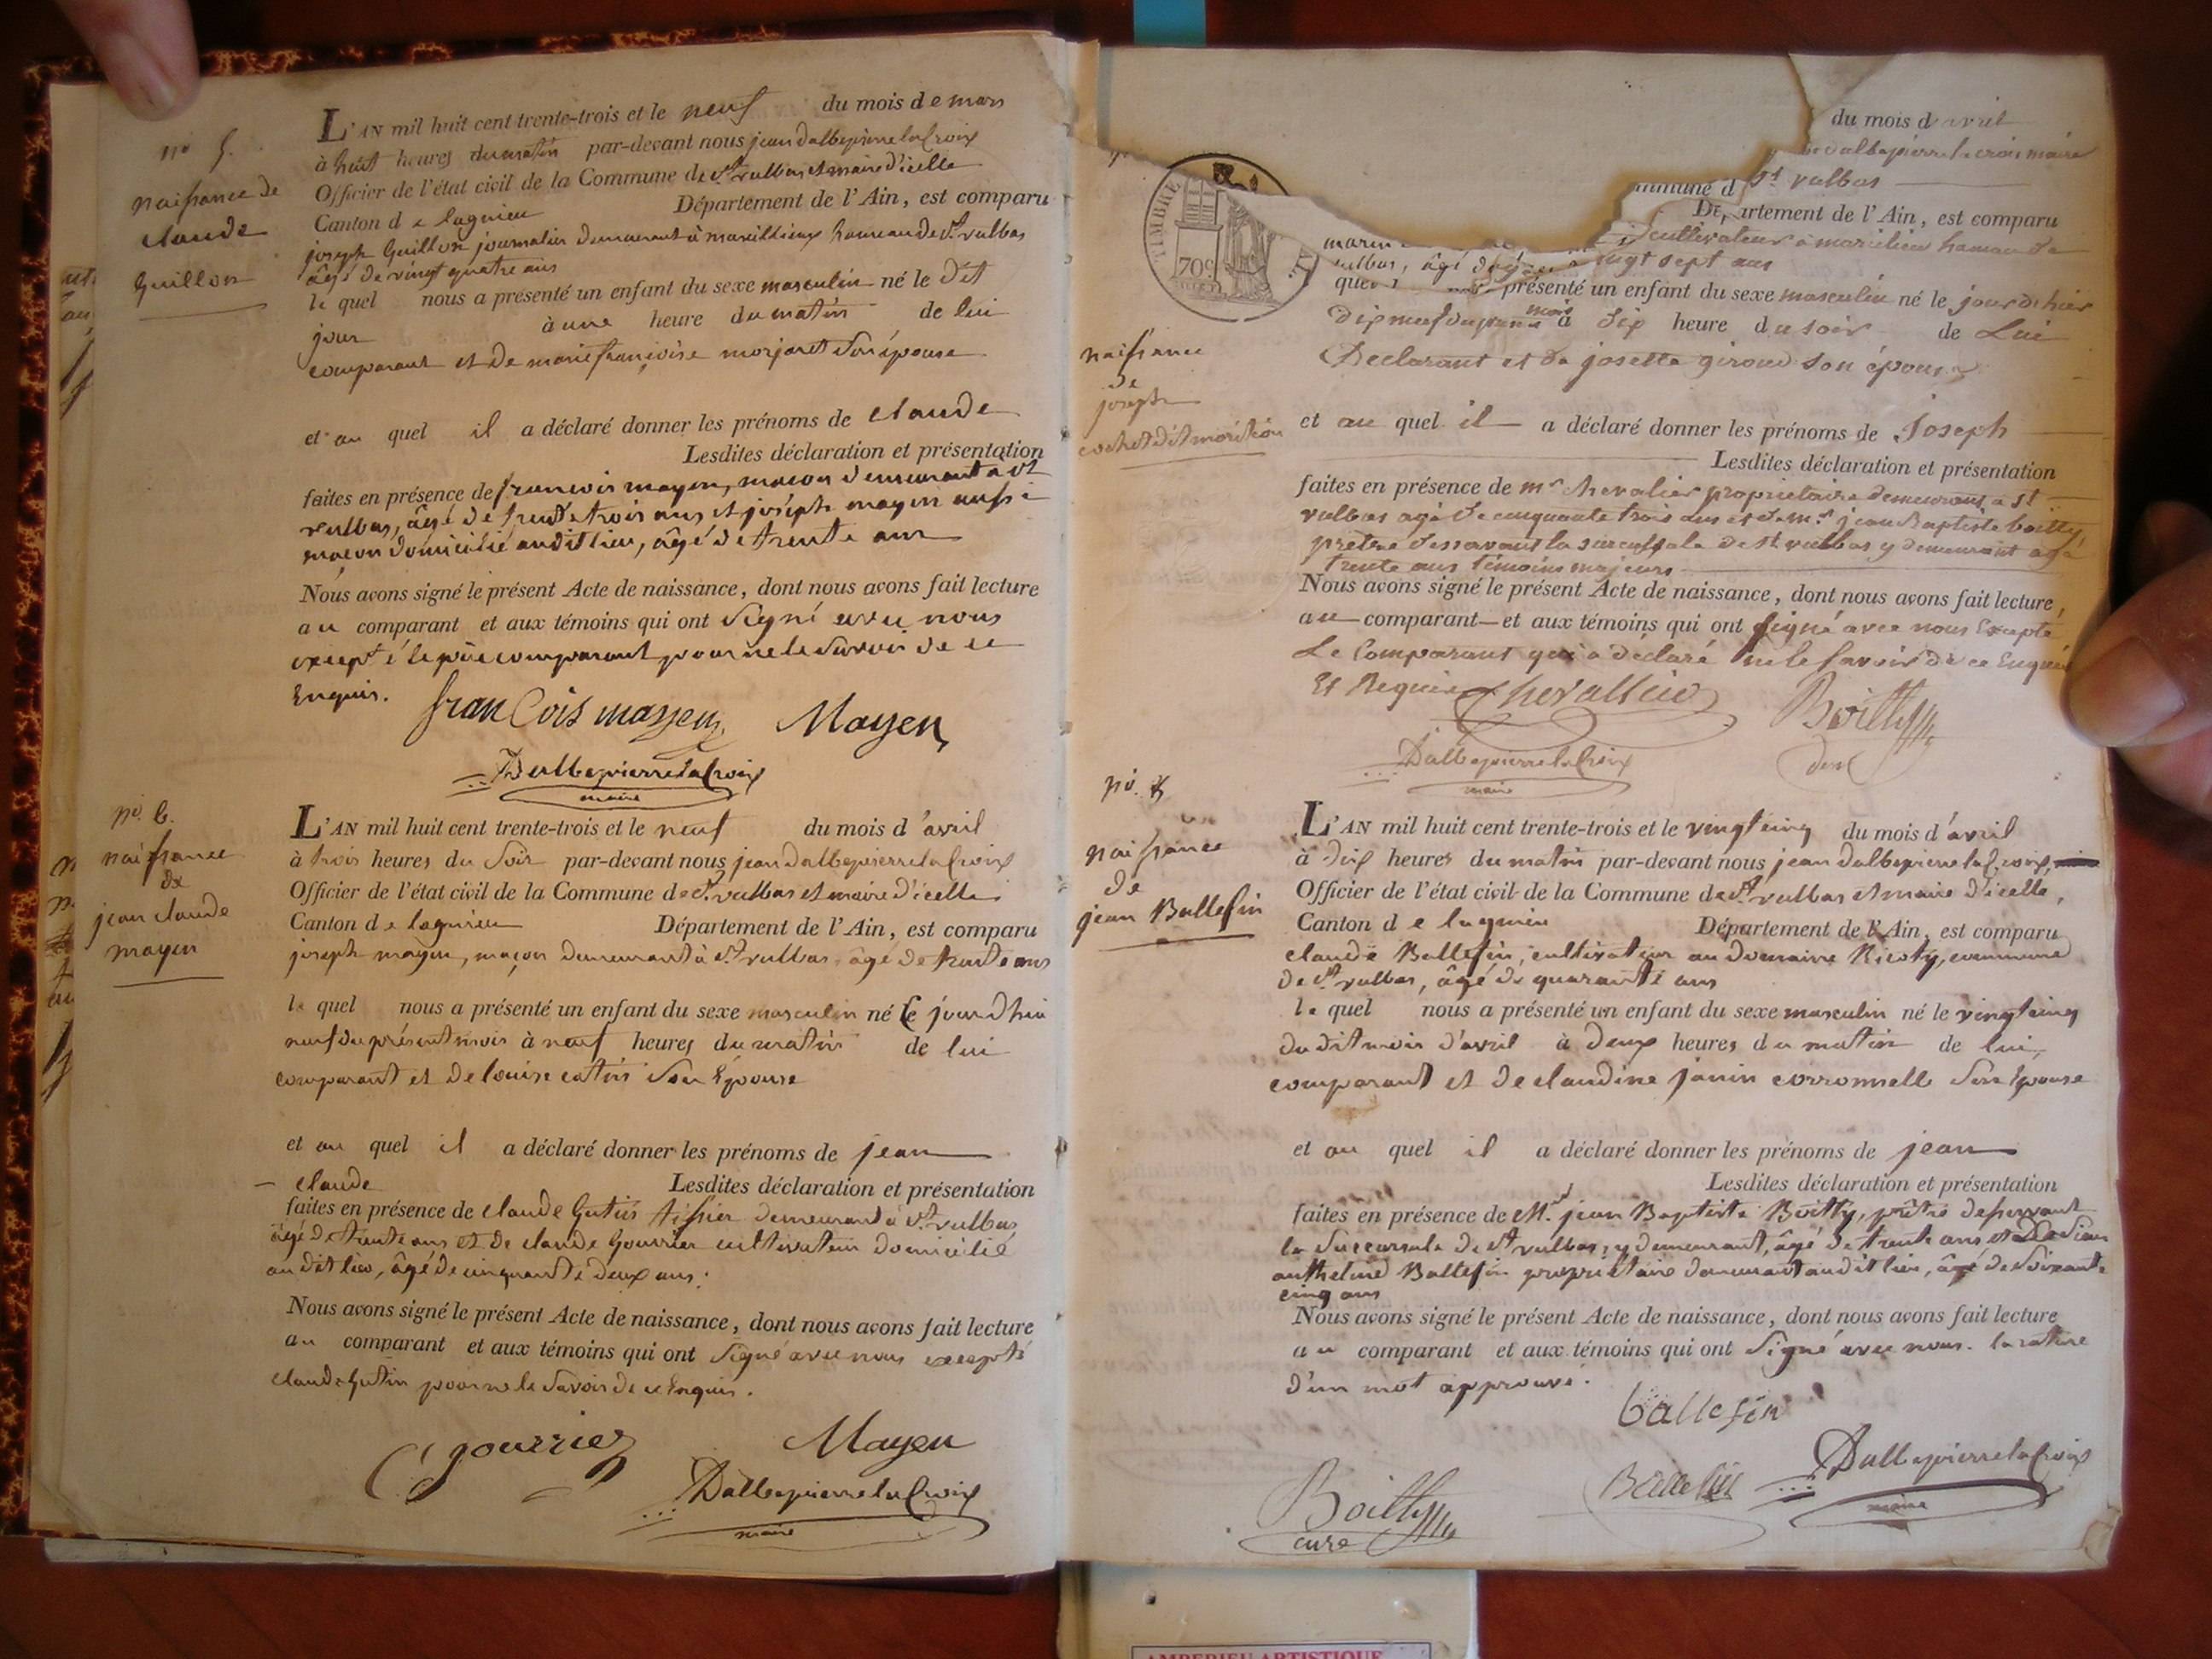 no 5.
naissance de
claude
Guillon
L'AN mil huit cent trente-trois et le neuf du mois de mars
à huit heures du matin par-devant nous jean dalbepierre lacroix
Officier de l'état civil de la Commune de St. vulbas et maire d'icelle
Canton de lagnieu Département de l'Ain, est comparu
joseph Guillon journalier demeurant à marcillieux hameau de St. vulbas
âgé de vingt quatre ans
le quel nous a présenté un enfant du sexe masculin né le dit
jour à une heure du matin de lui
comparant et de marie françoise morjaret son épouse
et au quel il a déclaré donner les prénoms de claude
Lesdites déclaration et présentation
faites en présence de francois mayen, maçon demeurant à St
vulbas, âgé de trente trois ans et joseph mayen aussi
maçon domicilié audit lieu, âgé de trente ans
Nous avons signé le présent Acte de naissance, dont nous avons fait lecture
au comparant et aux témoins qui ont signé avec nous
excepté le père comparant pour ne le savoir de ce
Enquis.
franCois mayen Mayen
Dalbepierre lacroix
maire
no. 6.
naissance
de
jean claude
mayen
L'AN mil huit cent trente-trois et le neuf du mois d'avril
à trois heures du soir par-devant nous jean dalbepierre lacroix
Officier de l'état civil de la Commune de St. vulbas et maire d'icelle
Canton de lagnieu Département de l'Ain, est comparu
joseph mayen, maçon demeurant à St. vulbas âgé de trente ans
le quel nous a présenté un enfant du sexe masculin né le jourd'hui
neuf du présent mois à neuf heures du matin de lui
comparant et de louise catin son Epouse
et au quel il a déclaré donner les prénoms de jean
claude Lesdites déclaration et présentation
faites en présence de claude Gutin tissier demeurant à St. vulbas
âgé de trente ans et de claude Gourrier cultivateur domicilié
audit lieu, âgé de cinquante deux ans.
Nous avons signé le présent Acte de naissance, dont nous avons fait lecture
au comparant et aux témoins qui ont signé avec nous excepté
claude Gutin pour ne le savoir de ce Enquis.
C gourrier Mayen
Dalbepierre lacroix
maire
TIMBRE
70c
du mois d'avril
dalbepierre lacroix maire
mmune d St vulbas
Département de l'Ain, est comparu
cultivateur à marcilieu hameau de
vulbas, âgé de vingt sept ans
quel présenté un enfant du sexe masculin né le jour d'hier
dix neuf du present mois à dix heure du soir de Lui
Declarant et de josette giroud son épouse
naissance
de
joseph
cochet dit morition
et au quel il a déclaré donner les prénoms de Joseph
Lesdites déclaration et présentation
faites en présence de mr chevalier proprietaire demeurant a st
vulbas agé de cinquante trois ans et de mr. jean Baptiste boilly
pretre desservant la succursale de st vulbas y demeurant agé
trente ans témoins majeurs
Nous avons signé le présent Acte de naissance, dont nous avons fait lecture,
au comparant et aux témoins qui ont signé avec nous Excepté
Le Comparant qui a déclaré ne le savoir de ce Enquis
Et Requis Chevallier Boilly
Dalbepierre lacroix
maire
no. 8
naissance
de
jean Ballefin
L'AN mil huit cent trente-trois et le vingt cinq du mois d'avril
à dix heures du matin par-devant nous jean dalbepierre lacroix,
Officier de l'état civil de la Commune de St. vulbas et maire d'icelle,
Canton de lagnieu Département de l'Ain, est comparu
claude Ballefin, cultivateur au domaine Ricoty, commune
de St. vulbas, âgé de quarante ans
le quel nous a présenté un enfant du sexe masculin né le vingt cinq
du dit mois d'avril à deux heures du matin de lui,
comparant et de claudine janin corronnelle son Epouse
et au quel il a déclaré donner les prénoms de jean
Lesdites déclaration et présentation
faites en présence de M. jean Baptiste Boilly, prêtre desservant
la succursale de St vulbas, y demeurant, âgé de trente ans et de
anthelme Ballefin propriétaire demeurant audit lieu, âgé de soixante
cinq ans
Nous avons signé le présent Acte de naissance, dont nous avons fait lecture
au comparant et aux témoins qui ont signé avec nous. la rature
d'un mot approuvé.
ballefin
Boilly
curé
Ballefin
Dalbepierre lacroix
maire
AMBERIEU ARTISTIQUE